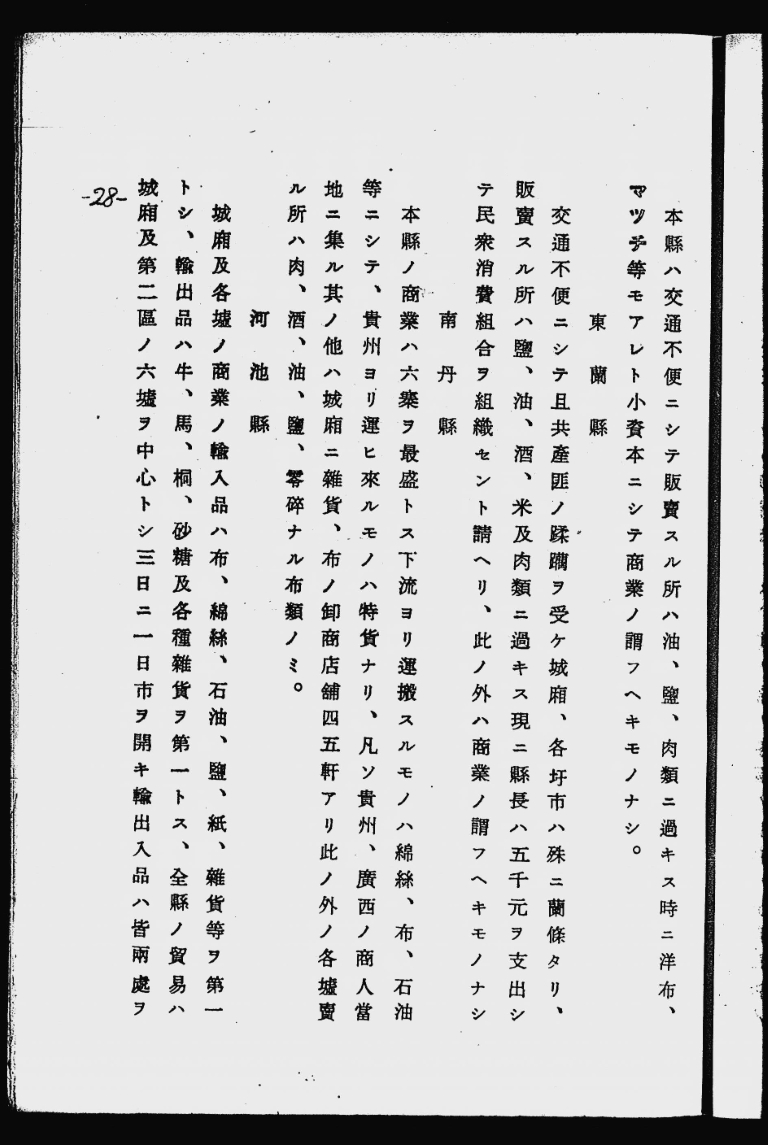 本縣ハ交通不便ニシテ販賣スル所ハ油、鹽、肉類ニ過キス時ニ洋布、
マツチ等モアレト小資本ニシテ商業ノ謂フヘキモノナシ。
東蘭縣
交通不便ニシテ且共產匪ノ蹂躪ヲ受ケ城廂、各圩市ハ殊ニ蘭條タリ、
販賣スル所ハ鹽、油、酒、米及肉類ニ過キス現ニ縣長ハ五千元ヲ支出シ
テ民衆消費組合ヲ組織セント請ヘリ、此ノ外ハ商業ノ謂フヘキモノナシ
南丹縣
本縣ノ商業ハ六寨ヲ最盛トス下流ヨリ運搬スルモノハ綿絲、布、石油
等ニシテ、貴州ヨリ運ヒ來ルモノハ特貨ナリ、凡ソ貴州、廣西ノ商人當
地ニ集ル其ノ他ハ城廂ニ雜貨、布ノ卸商店舖四五軒アリ此ノ外ノ各墟賣
ル所ハ肉、酒、油、鹽、零碎ナル布類ノミ。
河池縣
城廂及各墟ノ商業ノ輸入品ハ布、綿絲、石油、鹽、紙、雜貨等ヲ第一
トシ、輸出品ハ牛、馬、桐、砂糖及各種雜貨ヲ第一トス、全縣ノ貿易ハ
城廂及第二區ノ六墟ヲ中心トシ三日ニ一日市ヲ開キ輸出入品ハ皆兩處ヲ
-28-